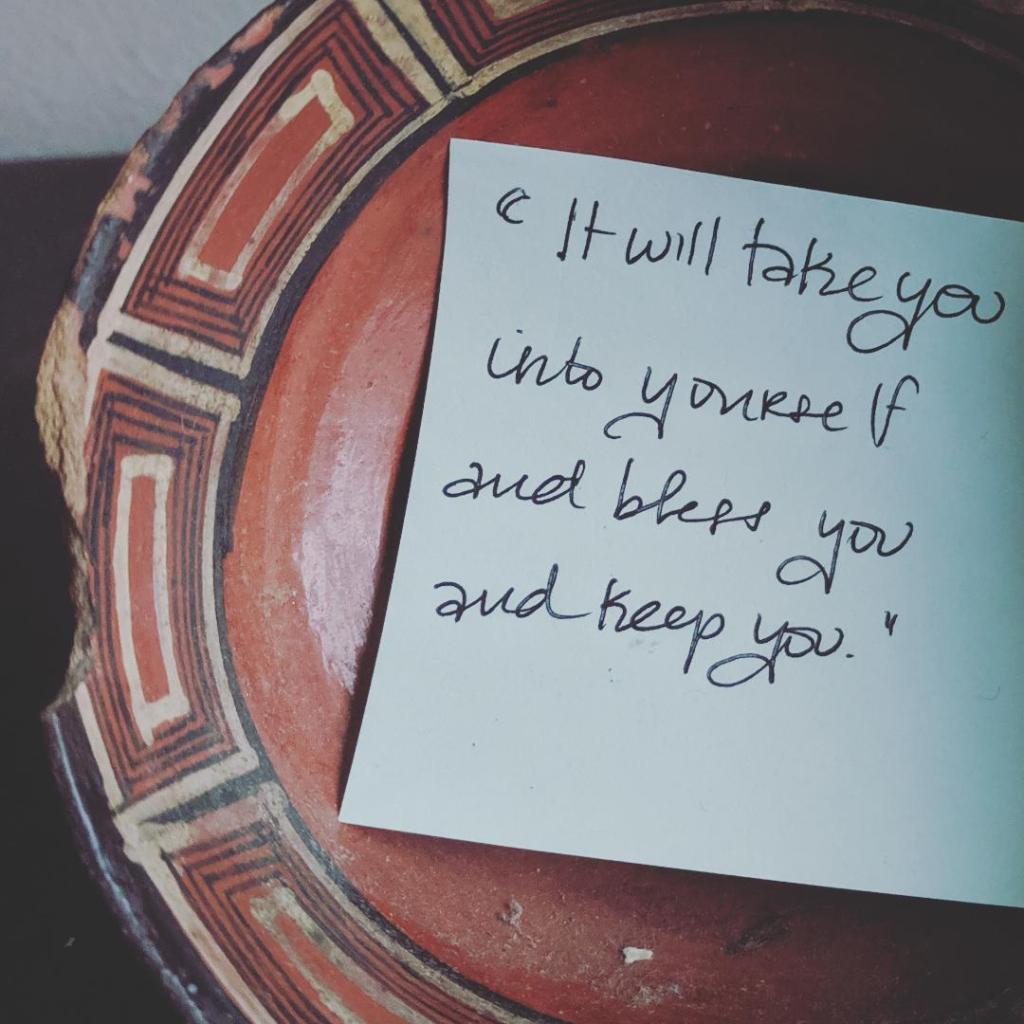 “ It will take you
into yourself
and bless you
and keep you.”